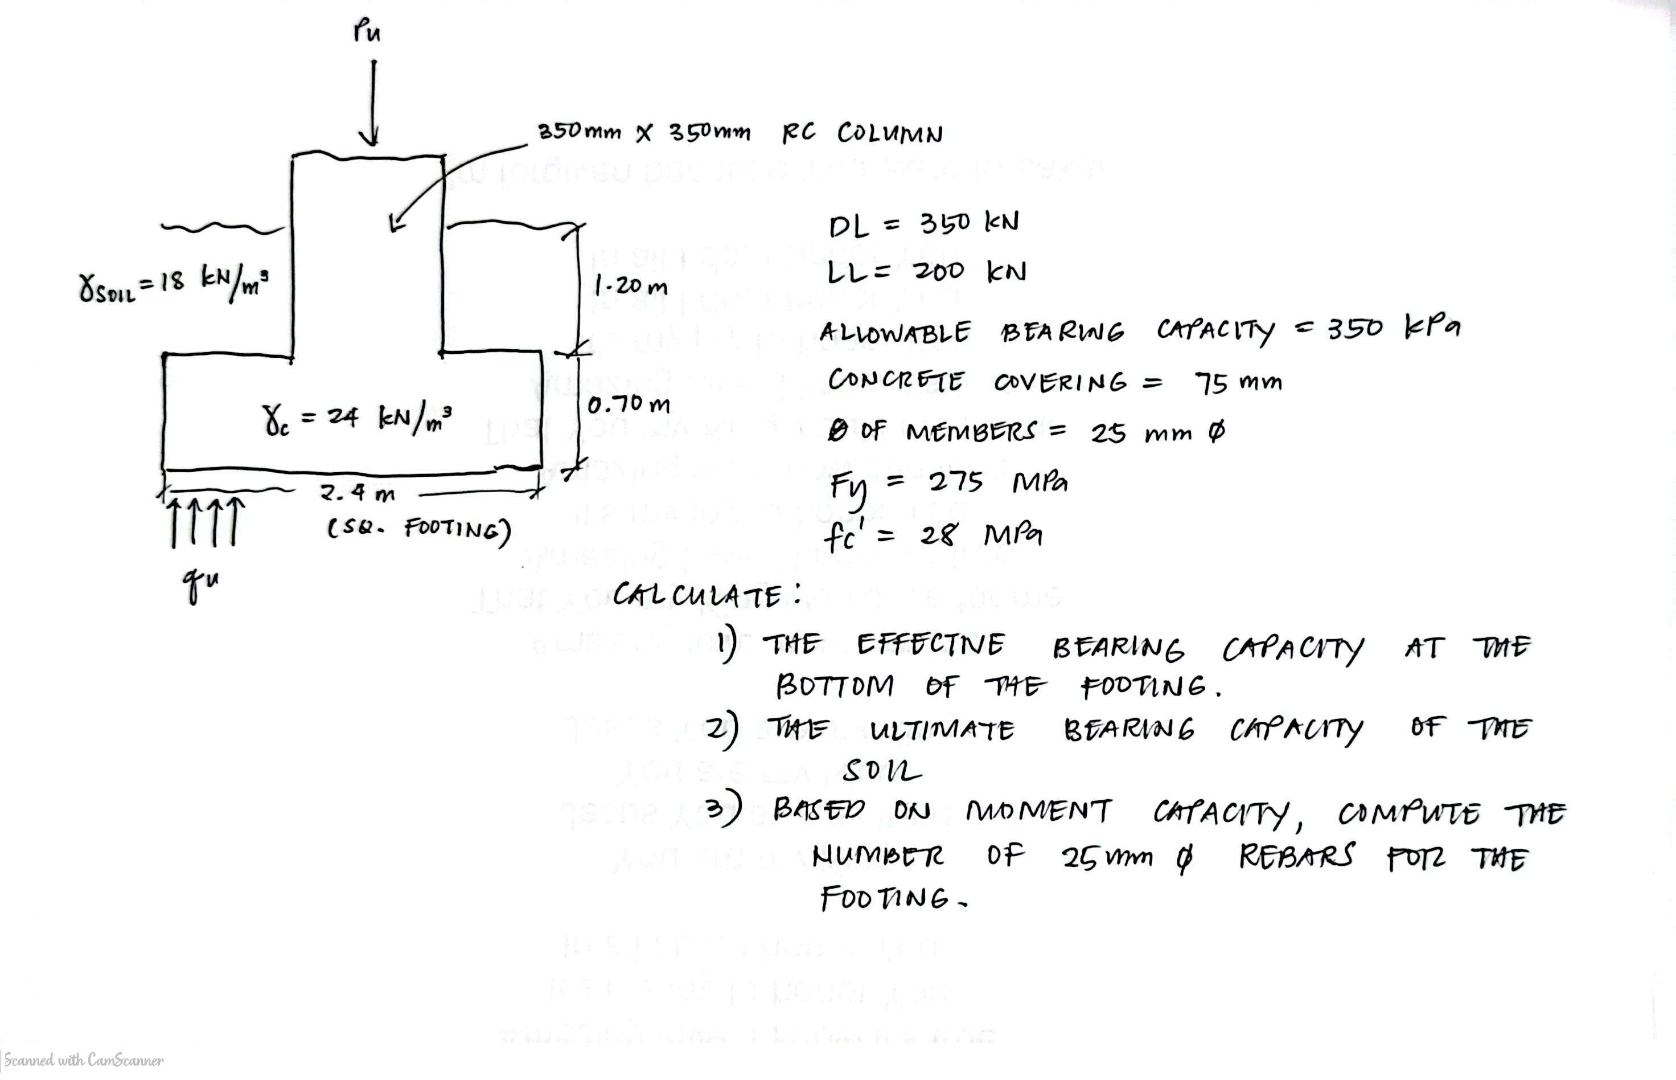 Pu
350mm X 350mm RC COLUMN
DL = 350 kN
LL = 200 kN
γSOIL = 18 kN/m³
1.20 m
ALLOWABLE BEARING CAPACITY = 350 kPa
CONCRETE COVERING = 75 mm
γc = 24 kN/m³
0.70 m
Ø OF MEMBERS = 25 mm Ø
Fy = 275 MPa
2.4 m
(SQ. FOOTING)
fc' = 28 MPa
qu
CALCULATE:
1) THE EFFECTIVE BEARING CAPACITY AT THE
BOTTOM OF THE FOOTING.
2) THE ULTIMATE BEARING CAPACITY OF THE
SOIL
3) BASED ON MOMENT CAPACITY, COMPUTE THE
NUMBER OF 25mm Ø REBARS FOR THE
FOOTING.
Scanned with CamScanner